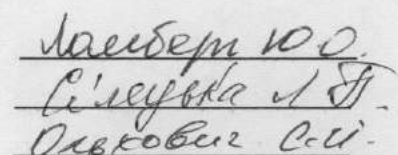 Ламберт Ю О.
Сілецька Л П.
Олькович С.І.